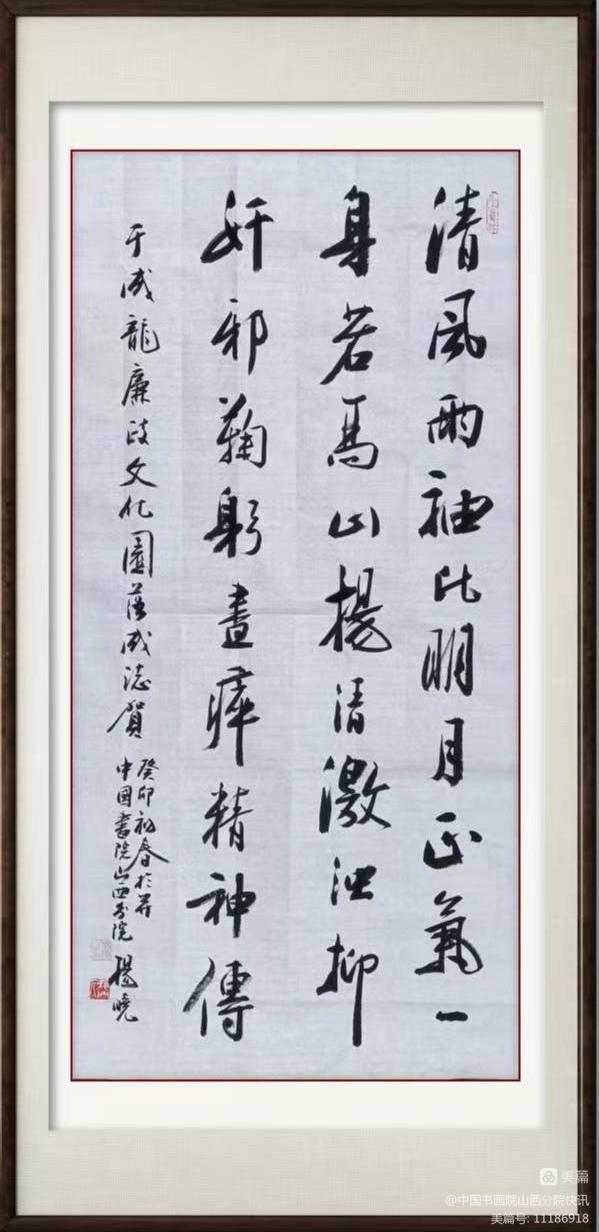 清風兩袖比明月正氣一
身若馬山揚清激浊抑
奸邪鞠躬盡瘁精神傳
于成龍廉政文化園落成誌賀
癸卯初春於并
中国書院山西分院
楊曉
美篇
@中国书画院山西分院快讯
美篇号: 11186918